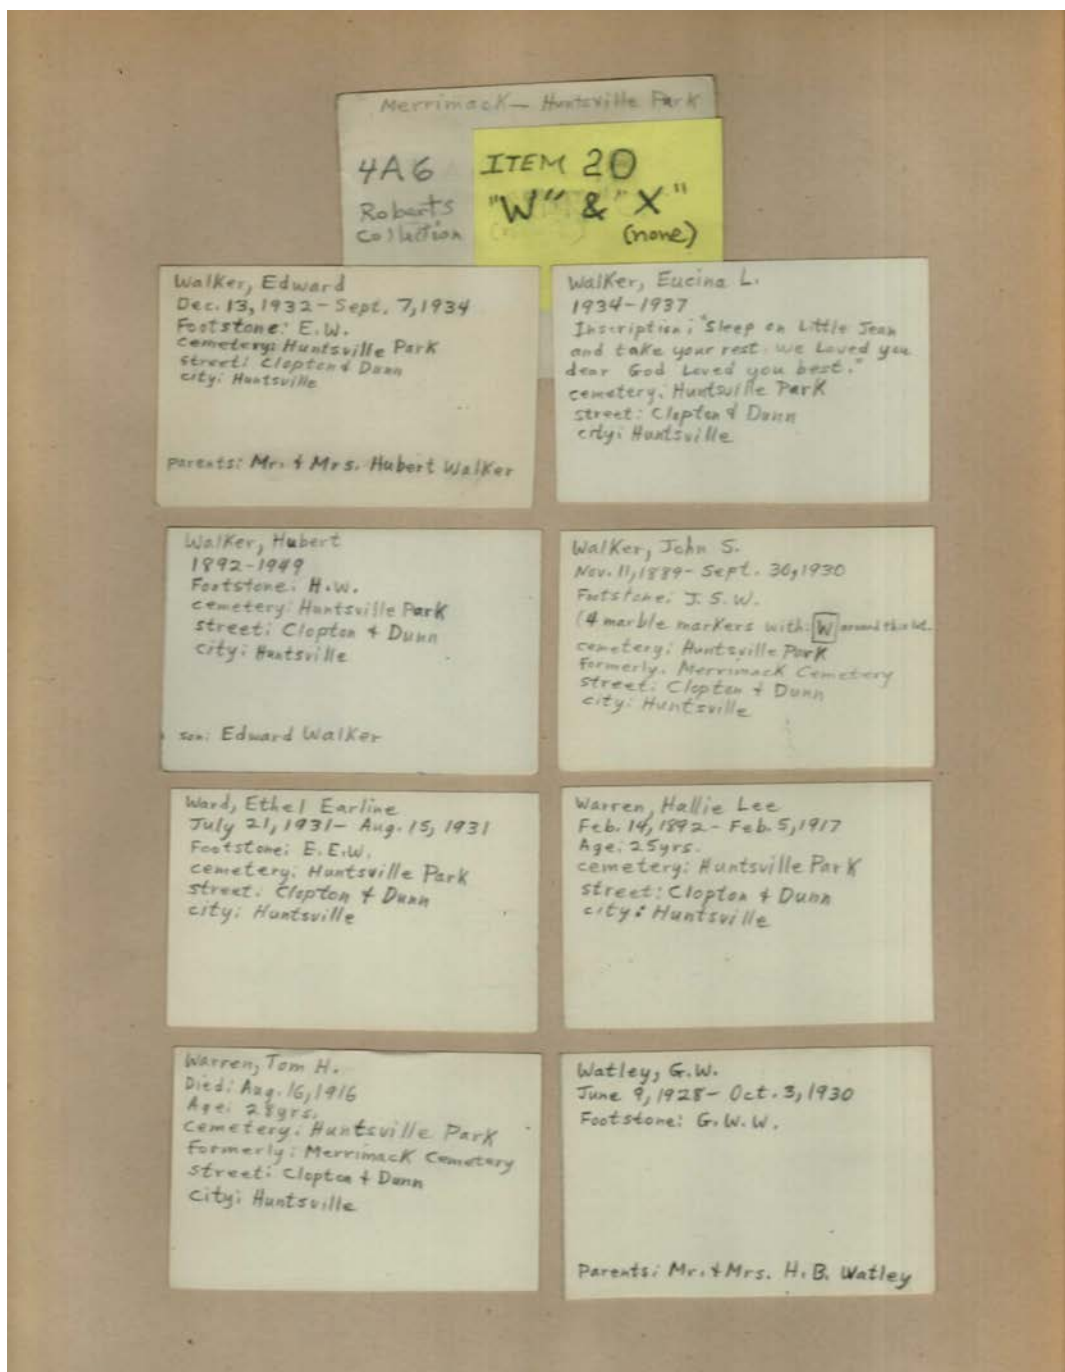 Merrimack — Huntsville Park
4A6
Roberts
Collection
ITEM 20
"W" & "X"
(none)
Walker, Edward
Dec. 13, 1932 - Sept. 7, 1934
Footstone: E.W.
cemetery: Huntsville Park
street: Clopton & Dunn
city: Huntsville
parents: Mr. & Mrs. Hubert Walker
Walker, Eucina L.
1934-1937
Inscription: "Sleep on Little Jean
and take your rest. We Loved you
dear God Loved you best."
cemetery: Huntsville Park
street: Clopton & Dunn
city: Huntsville
Walker, Hubert
1892-1949
Footstone: H.W.
cemetery: Huntsville Park
street: Clopton & Dunn
city: Huntsville
son: Edward Walker
Walker, John S.
Nov. 11, 1889 - Sept. 30, 1930
Footstone: J.S.W.
(4 marble markers with: W around this lot.
cemetery: Huntsville Park
formerly. Merrimack Cemetery
street: Clopton & Dunn
city: Huntsville
Ward, Ethel Earline
July 21, 1931 - Aug. 15, 1931
Footstone: E.E.W.
cemetery: Huntsville Park
street. Clopton & Dunn
city: Huntsville
Warren, Hallie Lee
Feb. 14, 1892 - Feb. 5, 1917
Age: 25yrs.
cemetery: Huntsville Park
street: Clopton & Dunn
city: Huntsville
Warren, Tom H.
Died: Aug. 16, 1916
Age: 28yrs.
cemetery: Huntsville Park
formerly: Merrimack Cemetery
street: Clopton & Dunn
city: Huntsville
Watley, G.W.
June 9, 1928 - Oct. 3, 1930
Footstone: G.W.W.
Parents: Mr. & Mrs. H.B. Watley